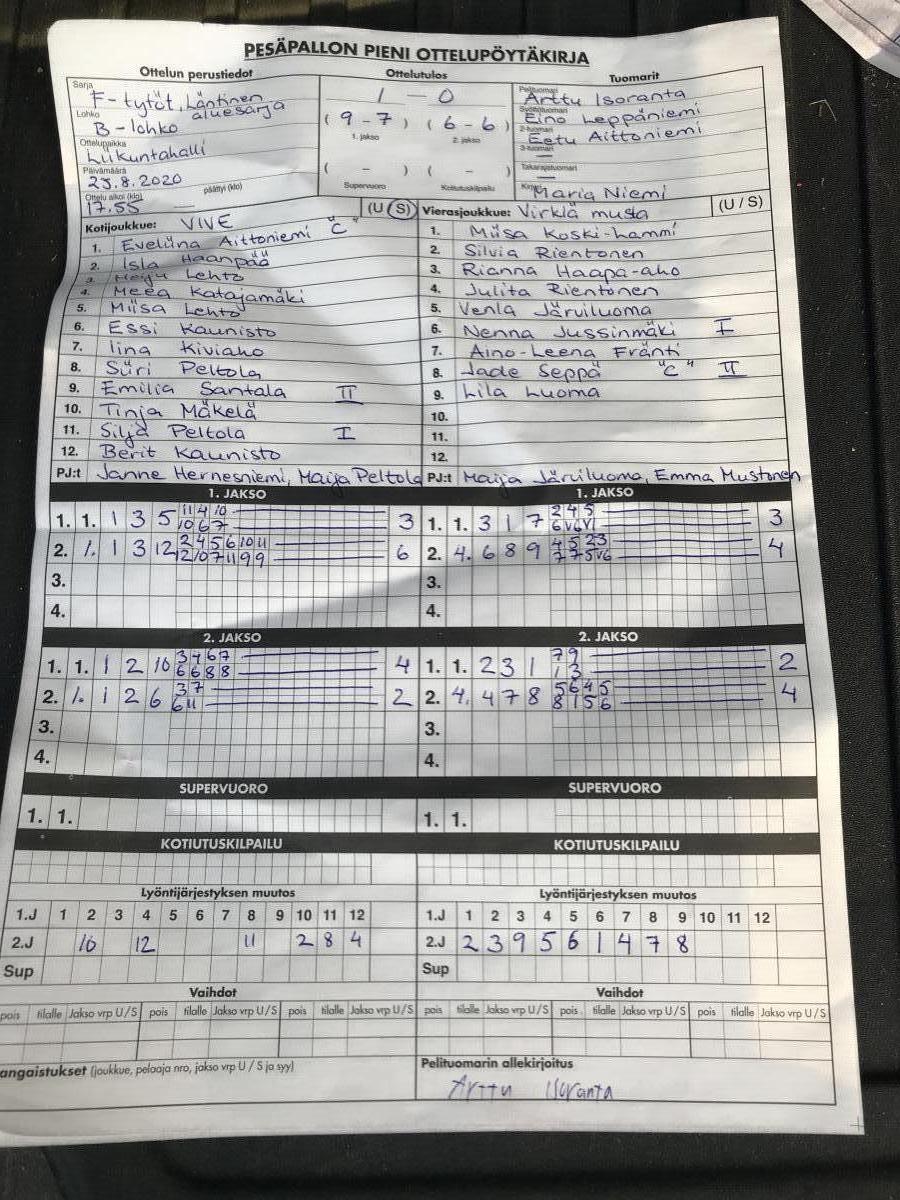 PESÄPALLON PIENI OTTELUPÖYTÄKIRJA
Ottelun perustiedot
Sarja
F-tytöt, Läntinen aluesarja
Lohko
B-lohko
Ottelupaikka
Liikuntahalli
Päivämäärä
23.8.2020
Ottelu alkoi (klo) päättyi (klo)
17.55 —
Ottelutulos
1 - 0
( 9 - 7 ) ( 6 - 6 )
1. jakso 2. jakso
( - ) ( - )
Supervuoro Kotiutuskilpailu
Tuomarit
Pelituomari
Arttu Isoranta
Syöttötuomari
Eino Leppäniemi
2-tuomari
Eetu Aittoniemi
3-tuomari
—
Takarajatuomari
—
Kirjuri
Maria Niemi
Kotijoukkue: VIVE (U/S)
1. Eveliina Aittoniemi "C"
2. Isla Haanpää
3. Meiju Lehto
4. Meea Katajamäki
5. Miisa Lehto
6. Essi Kaunisto
7. Iina Kiviaho
8. Siiri Peltola
9. Emilia Santala II
10. Tinja Mäkelä
11. Silja Peltola I
12. Berit Kaunisto
PJ:t Janne Hernesniemi, Maija Peltola
Vierasjoukkue: Virkiä musta (U/S)
1. Miisa Koski-Lammi
2. Silvia Rientonen
3. Rianna Haapa-aho
4. Julita Rientonen
5. Venla Järviluoma
6. Nenna Jussinmäki I
7. Aino-Leena Fränti
8. Jade Seppä "C" II
9. Lila Luoma
10.
11.
12.
PJ:t Maija Järviluoma, Emma Mustonen
1. JAKSO 1. JAKSO
1. 1. 1 3 5 11 4 10 3
10 6 7
2. 1. 1 3 12 2 4 5 6 10 11 6
12 10 7 11 9 9
3.
4.
1. 1. 3 1 7 2 4 5 3
6 V6 V1
2. 4. 6 8 9 4 5 2 3 4
7 7 5 V6
3.
4.
2. JAKSO 2. JAKSO
1. 1. 1 2 10 3 4 6 7 4
6 6 8 8
2. 1. 1 2 6 3 7 2
6 11
3.
4.
1. 1. 2 3 1 7 9 2
1 3
2. 4. 4 7 8 5 6 4 5 4
8 1 5 6
3.
4.
SUPERVUORO SUPERVUORO
1. 1. 1. 1.
KOTIUTUSKILPAILU KOTIUTUSKILPAILU
Lyöntijärjestyksen muutos
1.J 1 2 3 4 5 6 7 8 9 10 11 12
2.J 10 12 11 2 8 4
Sup
Lyöntijärjestyksen muutos
1.J 1 2 3 4 5 6 7 8 9 10 11 12
2.J 2 3 9 5 6 1 4 7 8
Sup
Vaihdot Vaihdot
pois tilalle Jakso vrp U/S pois tilalle Jakso vrp U/S pois tilalle Jakso vrp U/S
pois tilalle Jakso vrp U/S pois tilalle Jakso vrp U/S pois tilalle Jakso vrp U/S
angaistukset (joukkue, pelaaja nro, jakso vrp U / S ja syy)
Pelituomarin allekirjoitus
Arttu Isoranta